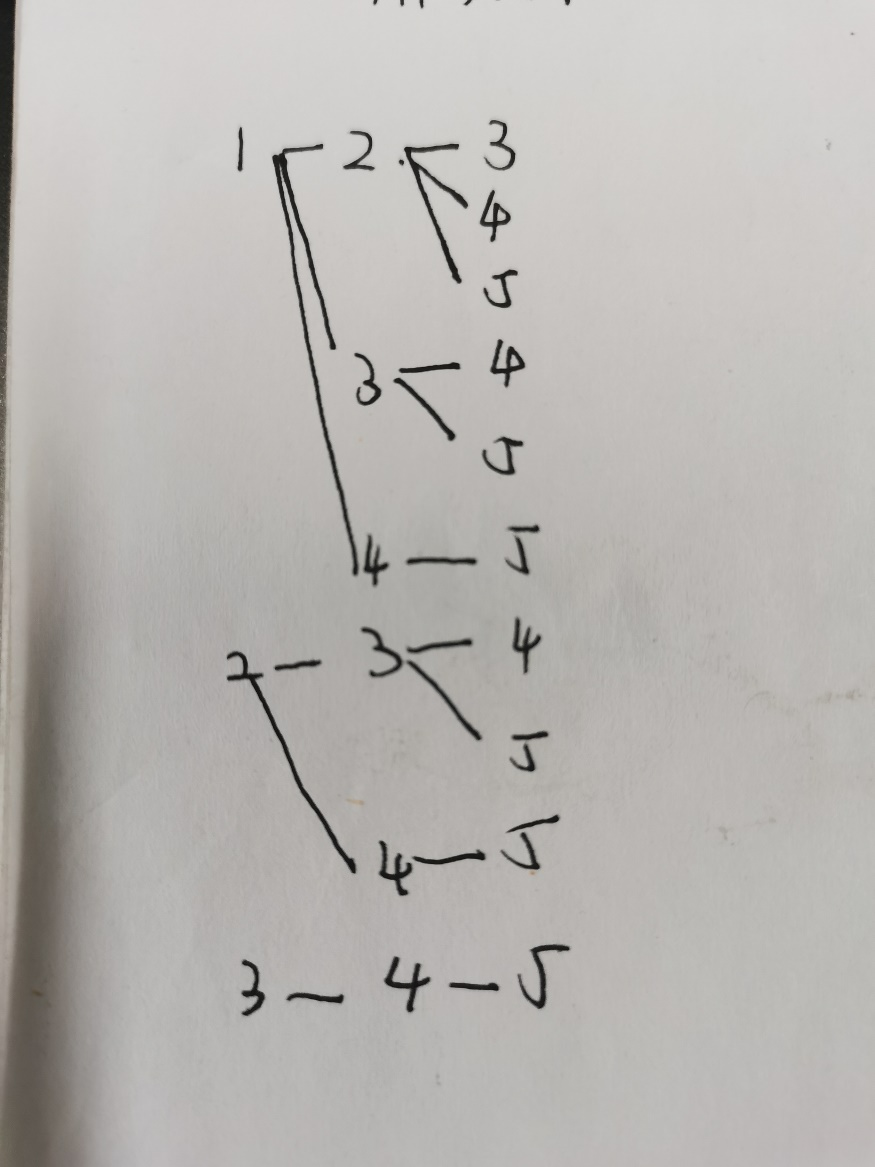 1 - 2 - 3
4
5
3 - 4
5
4 - 5
2 - 3 - 4
5
4 - 5
3 - 4 - 5